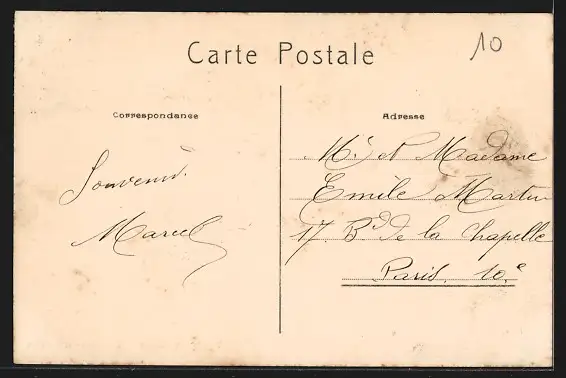 10
Carte Postale
Correspondance
Souvenir.
Marcel
Adresse
Mr. et Madame
Emile Martin
17. Bd de la Chapelle
Paris. 10.e